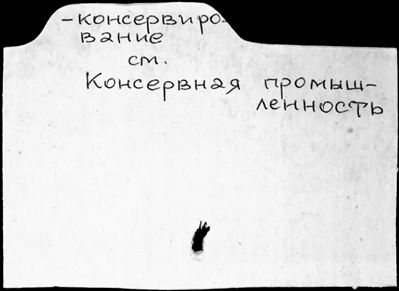 -консервиро-
вание
см.
Консервная промыш-
ленность